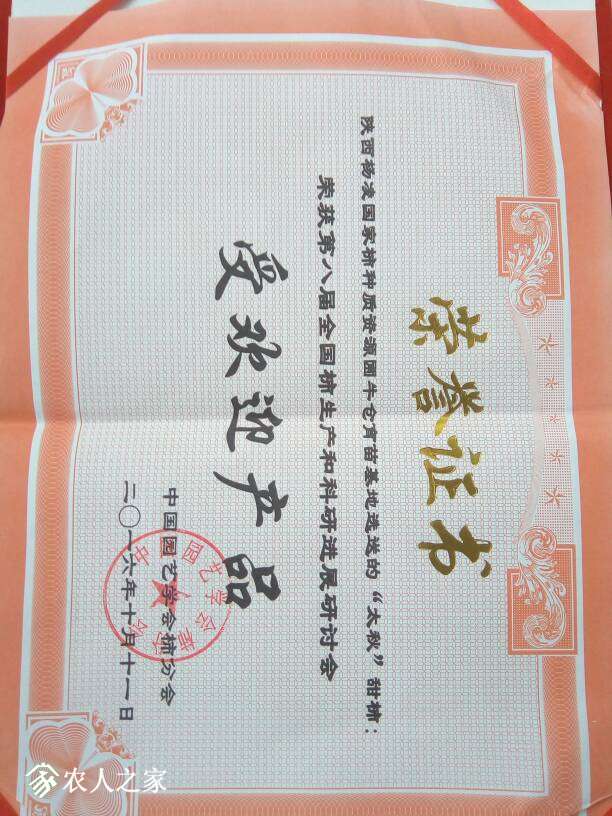 荣誉证书
陕西杨凌国家柿种质资源圃牛仓育苗基地选送的“太秋”甜柿：
荣获第八届全国柿生产和科研进展研讨会
受欢迎产品
中国园艺学会柿分会
二〇一六年十月十一日
农人之家